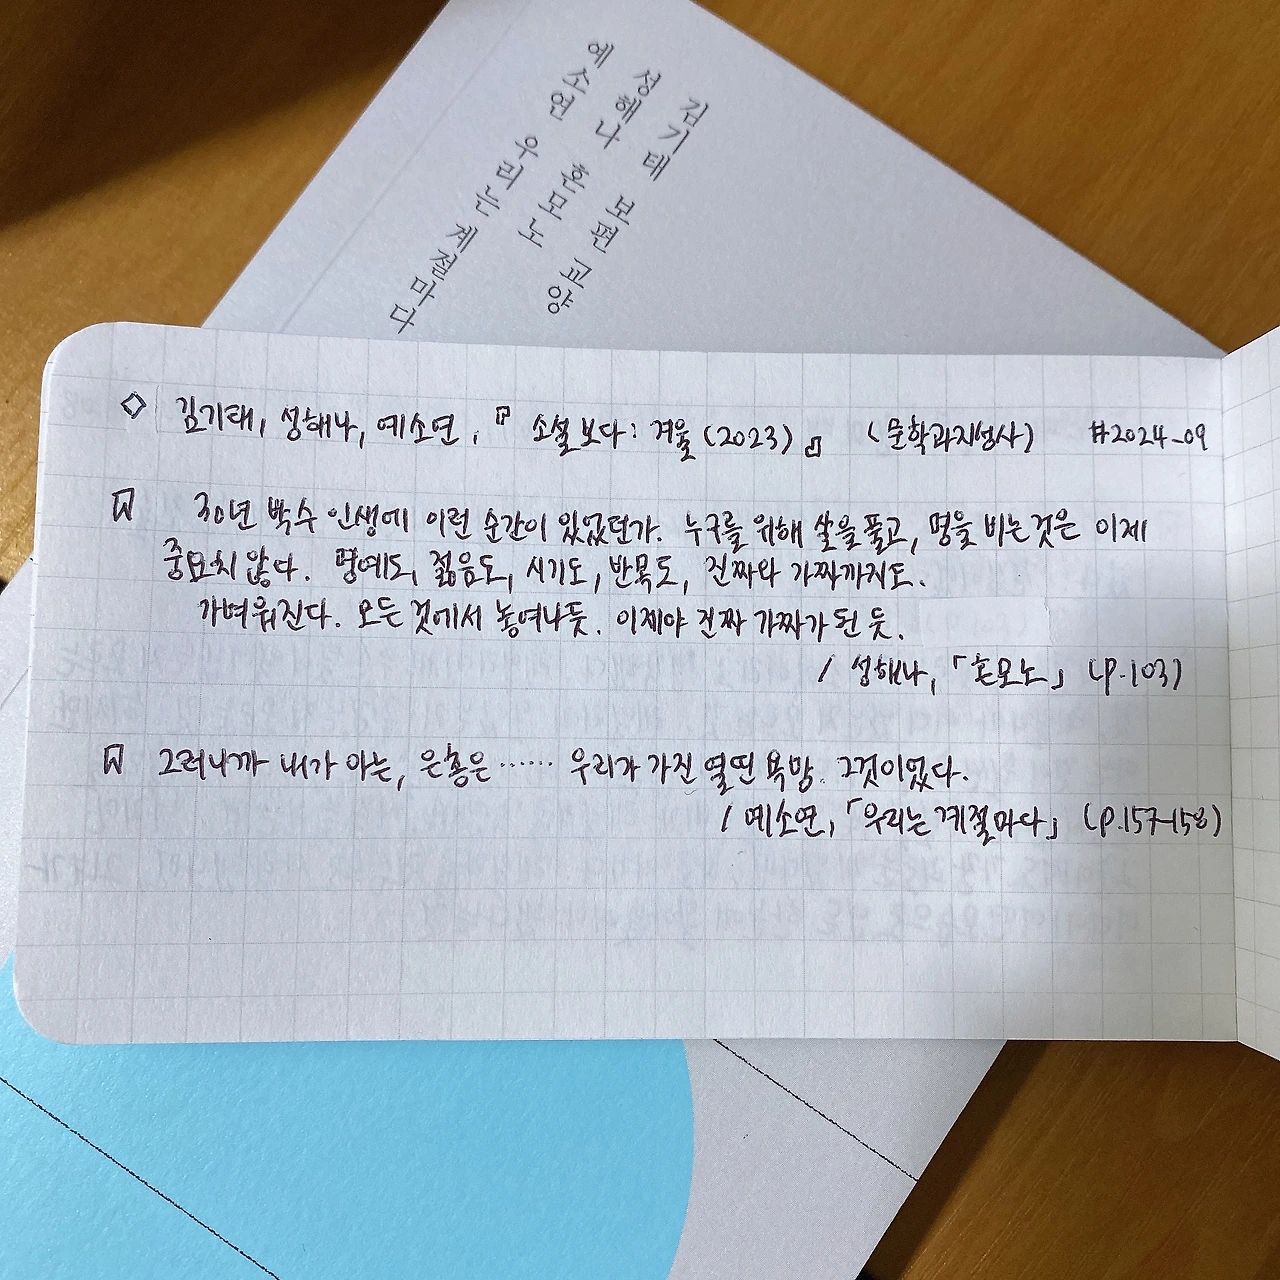 김기태 보편 교양
성해나 혼모노
예소연 우리는 계절마다
◇ 김기태, 성해나, 예소연, 『소설 보다: 겨울(2023)』 (문학과지성사) #2024-09
30년 박수 인생에 이런 순간이 있었던가. 누구를 위해 살을 풀고, 명을 비는 것은 이제
중요치 않다. 명예도, 젊음도, 시기도, 반목도, 진짜와 가짜까지도.
가벼워진다. 모든 것에서 놓여나듯. 이제야 진짜 가짜가 된 듯.
/ 성해나, 「혼모노」 (p.103)
그러니까 내가 아는, 은홍은 …… 우리가 가진 열띤 욕망. 그것이었다.
/ 예소연, 「우리는 계절마다」 (p.157-158)